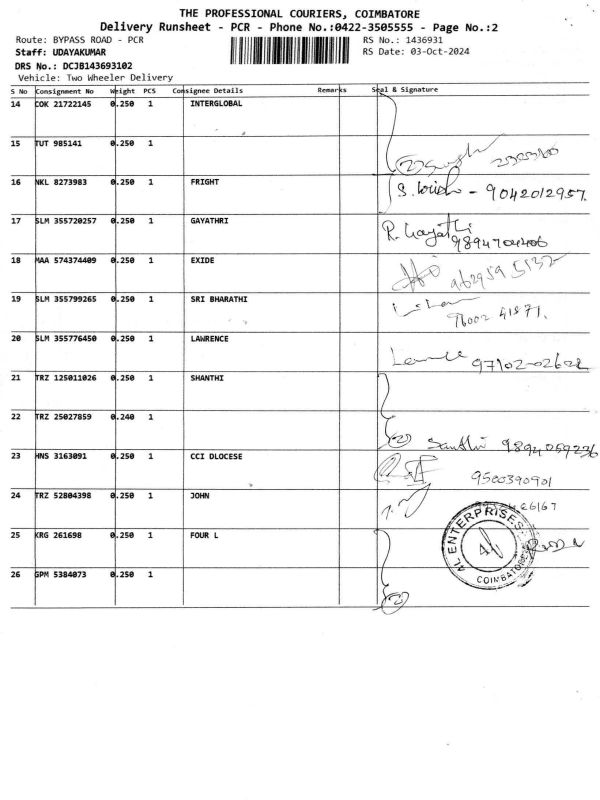 THE PROFESSIONAL COURIERS, COIMBATORE
Delivery Runsheet - PCR - Phone No.:0422-3505555 - Page No.:2
Route: BYPASS ROAD - PCR
RS No.: 1436931
Staff: UDAYAKUMAR
RS Date: 03-Oct-2024
DRS No.: DCJB143693102
Vehicle: Two Wheeler Delivery
S No Consignment No Weight PCS Consignee Details Remarks Seal & Signature
14 COK 21722145 0.250 1 INTERGLOBAL
15 TUT 985141 0.250 1
16 NKL 8273983 0.250 1 FRIGHT - 9042012957.
17 SLM 355720257 0.250 1 GAYATHRI R. Gayathri
9894704406
18 MAA 574374409 0.250 1 EXIDE
19 SLM 355799265 0.250 1 SRI BHARATHI
76002 41871.
20 SLM 355776450 0.250 1 LAWRENCE
21 TRZ 125011026 0.250 1 SHANTHI
22 TRZ 25027859 0.240 1
2 Santhi 9894059236
23 HNS 3163091 0.250 1 CCI DLOCESE
9500390901
24 TRZ 52804398 0.250 1 JOHN
26167
25 KRG 261698 0.250 1 FOUR L
AL ENTERPRISES
COIMBATORE
26 GPM 5384073 0.250 1
2